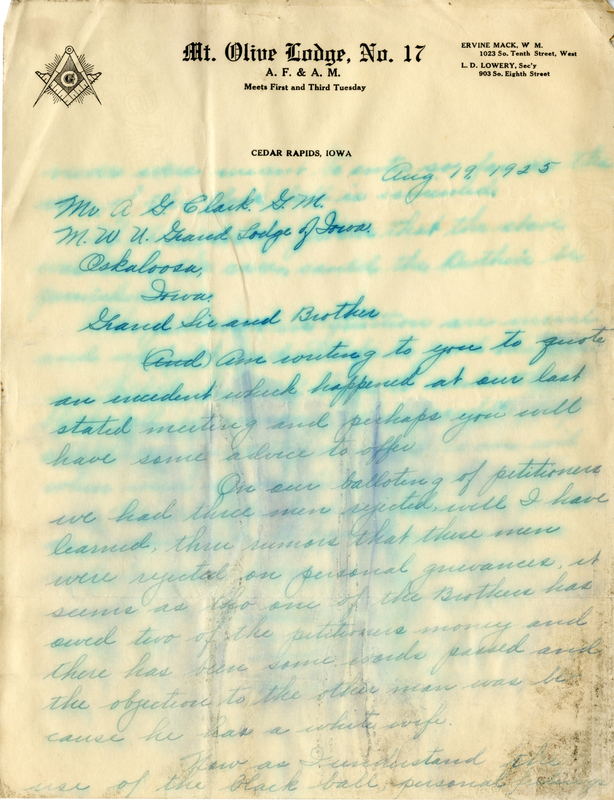 G
Mt. Olive Lodge, No. 17
A. F. & A. M.
Meets First and Third Tuesday
ERVINE MACK, W M.
1023 So. Tenth Street, West
L. D. LOWERY, Sec'y
903 So. Eighth Street
CEDAR RAPIDS, IOWA
Aug 19, 1925
Mr A G. Clark. G.M.
M. W U. Grand Lodge of Iowa.
Oskaloosa,
Iowa.
Grand Sir and Brother
(And) Am writing to you to quote
an incident which happened at our last
stated meeting and perhaps you will
have some advice to offer
On our balloting of petitioners
we had three men rejected, well I have
learned, thru rumors that these men
were rejected on personal grievances, it
seems as tho one of the Brothers has
owed two of the petitioners money and
there has been some words passed and
the objection to the other man was be
cause he has a white wife.
Now as I understand the
use of the black ball, personal